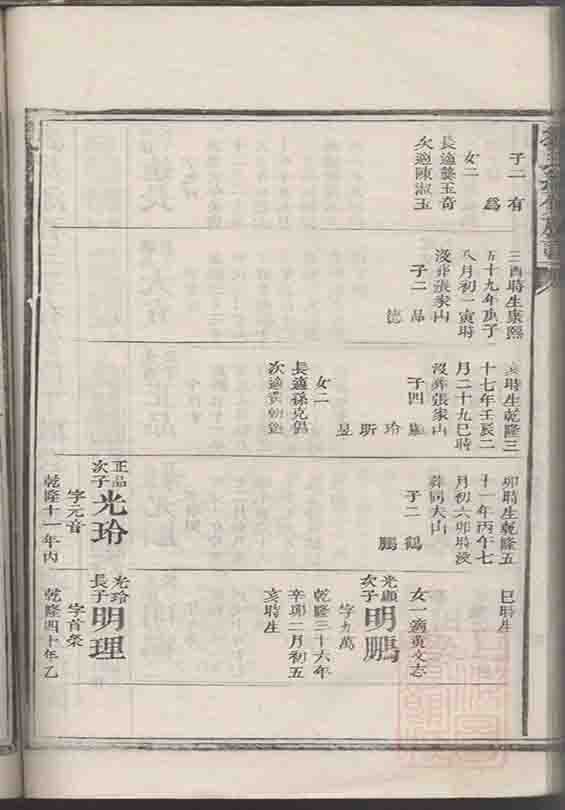 子二 有
爲
女二
長適龔玉奇
次適陳淑玉
三酉時生康熙
五十九年庚子
八月初一寅時
沒葬張家山
子二 品
德
亥時生乾隆三
十七年壬辰二
月二十九巳時
沒葬張家山
子四 顯
玲
昕
昱
女二
長適孫克
次適黃朝
卯時生乾隆五
十一年丙午七
月初六卯時沒
葬同大山
子二 鶴
鵬
正品
次子
光玲
字元音
乾隆十一年丙
巳時生
女一適黃文志
光顯
次子
明鵬
字九萬
乾隆三十六年
辛卯二月初五
亥時生
光玲
長子
明理
字首榮
乾隆四十年乙